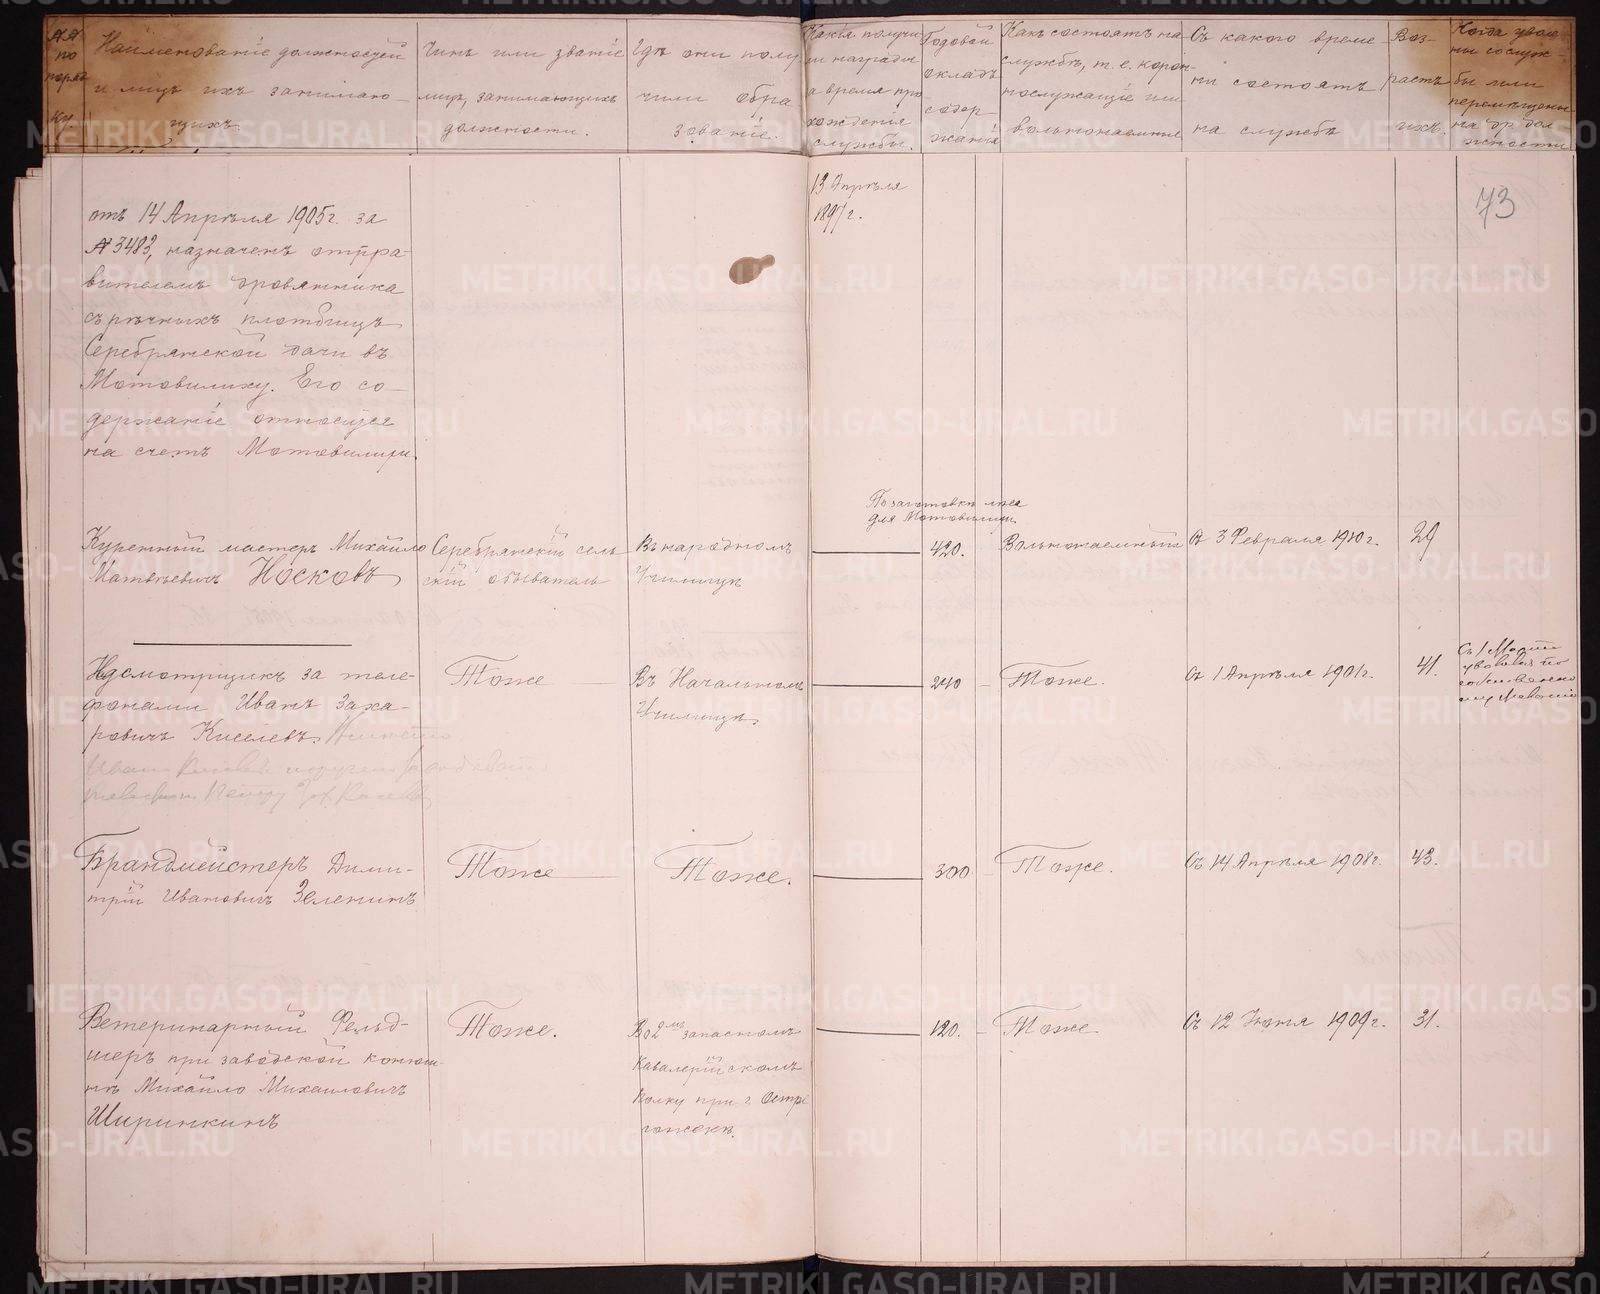 №№
по
поряд
ку
Наименованіе должностей
и лицъ ихъ занимаю-
щихъ.
Чинъ или званіе
лицъ, занимающихъ
должности.
Гдѣ они полу
чили обра
зованіе.
Какія получи
ли награды
а время про
хожденія
службы.
Годовой
окладъ
содер
жанія
Какъ состоятъ на
службѣ, т. е. корон-
нослужащіе или
вольнонаемные
Съ какого време-
ни состоятъ
на службѣ
Воз-
растъ
ихъ.
Когда уволе
ны со служ
бы или
перемѣщены
на др. дол
жности
73
отъ 14 Апрѣля 1905 г. за
№ 3483, назначенъ отпра-
вителемъ дровяника
съ рѣчныхъ плотбищъ
Серебрянской дачи въ
Мотовилиху. Его со-
держаніе относится
на счетъ Мотовилихи.
13 Апрѣля
1897 г.
По заготовкѣ лѣса
для Мотовилихи.
Куренный мастеръ Михайло
Матвѣевичъ Носковъ
Серебрянскій сель
скій обыватель
Въ народномъ
Училищѣ
420.
Вольнонаемный
Съ 3 Февраля 1910 г.
29
Надсмотрщикъ за теле-
фонами Иванъ Заха-
ровичъ Киселевъ.
Тоже
Въ Начальномъ
Училищѣ
240
Тоже.
Съ 1 Апрѣля 1901 г.
41.
Съ 1 Марта
уволенъ по
собственно
му желанію
Брандмейстеръ Дими-
трій Ивановичъ Зеленинъ
Тоже
Тоже.
300
Тоже.
Съ 14 Апрѣля 1908 г.
43.
Ветеринарный Фельд-
шеръ при заводской конюш-
нѣ Михайло Михаиловичъ
Ширинкинъ
Тоже.
Во 2мъ запасномъ
Кавалерійскомъ
Полку при г. Остро
гожскѣ.
120.
Тоже
Съ 12 Іюня 1909 г.
31.
METRIKI.GASO-URAL.RU